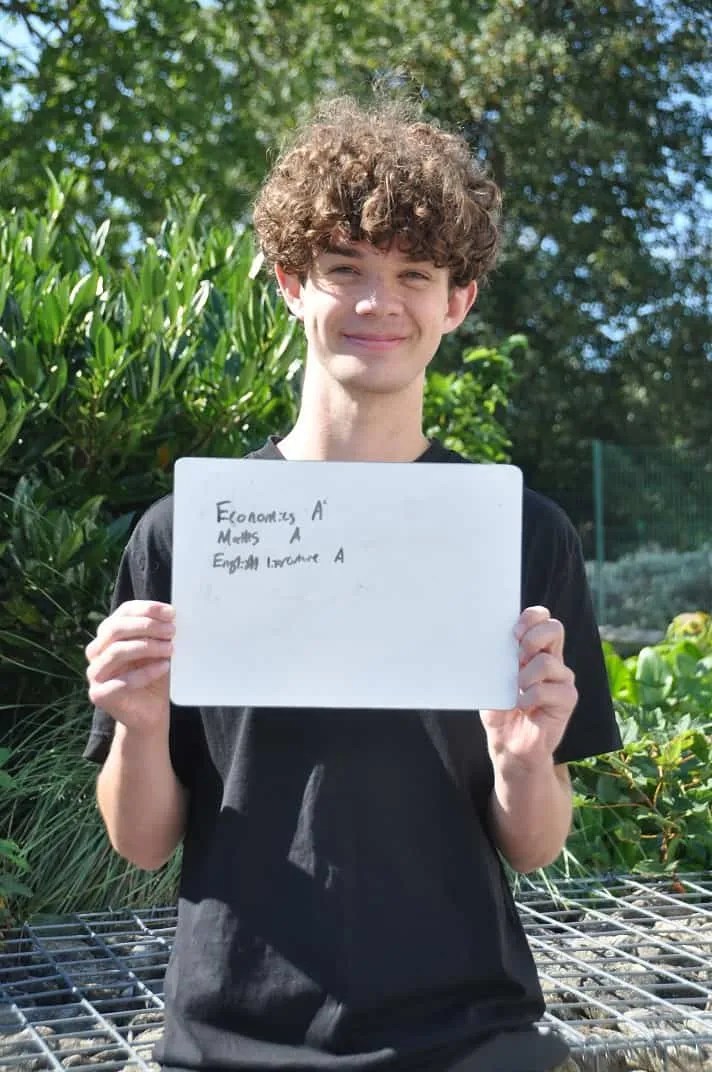 Economics A*
Maths A
English Literature A